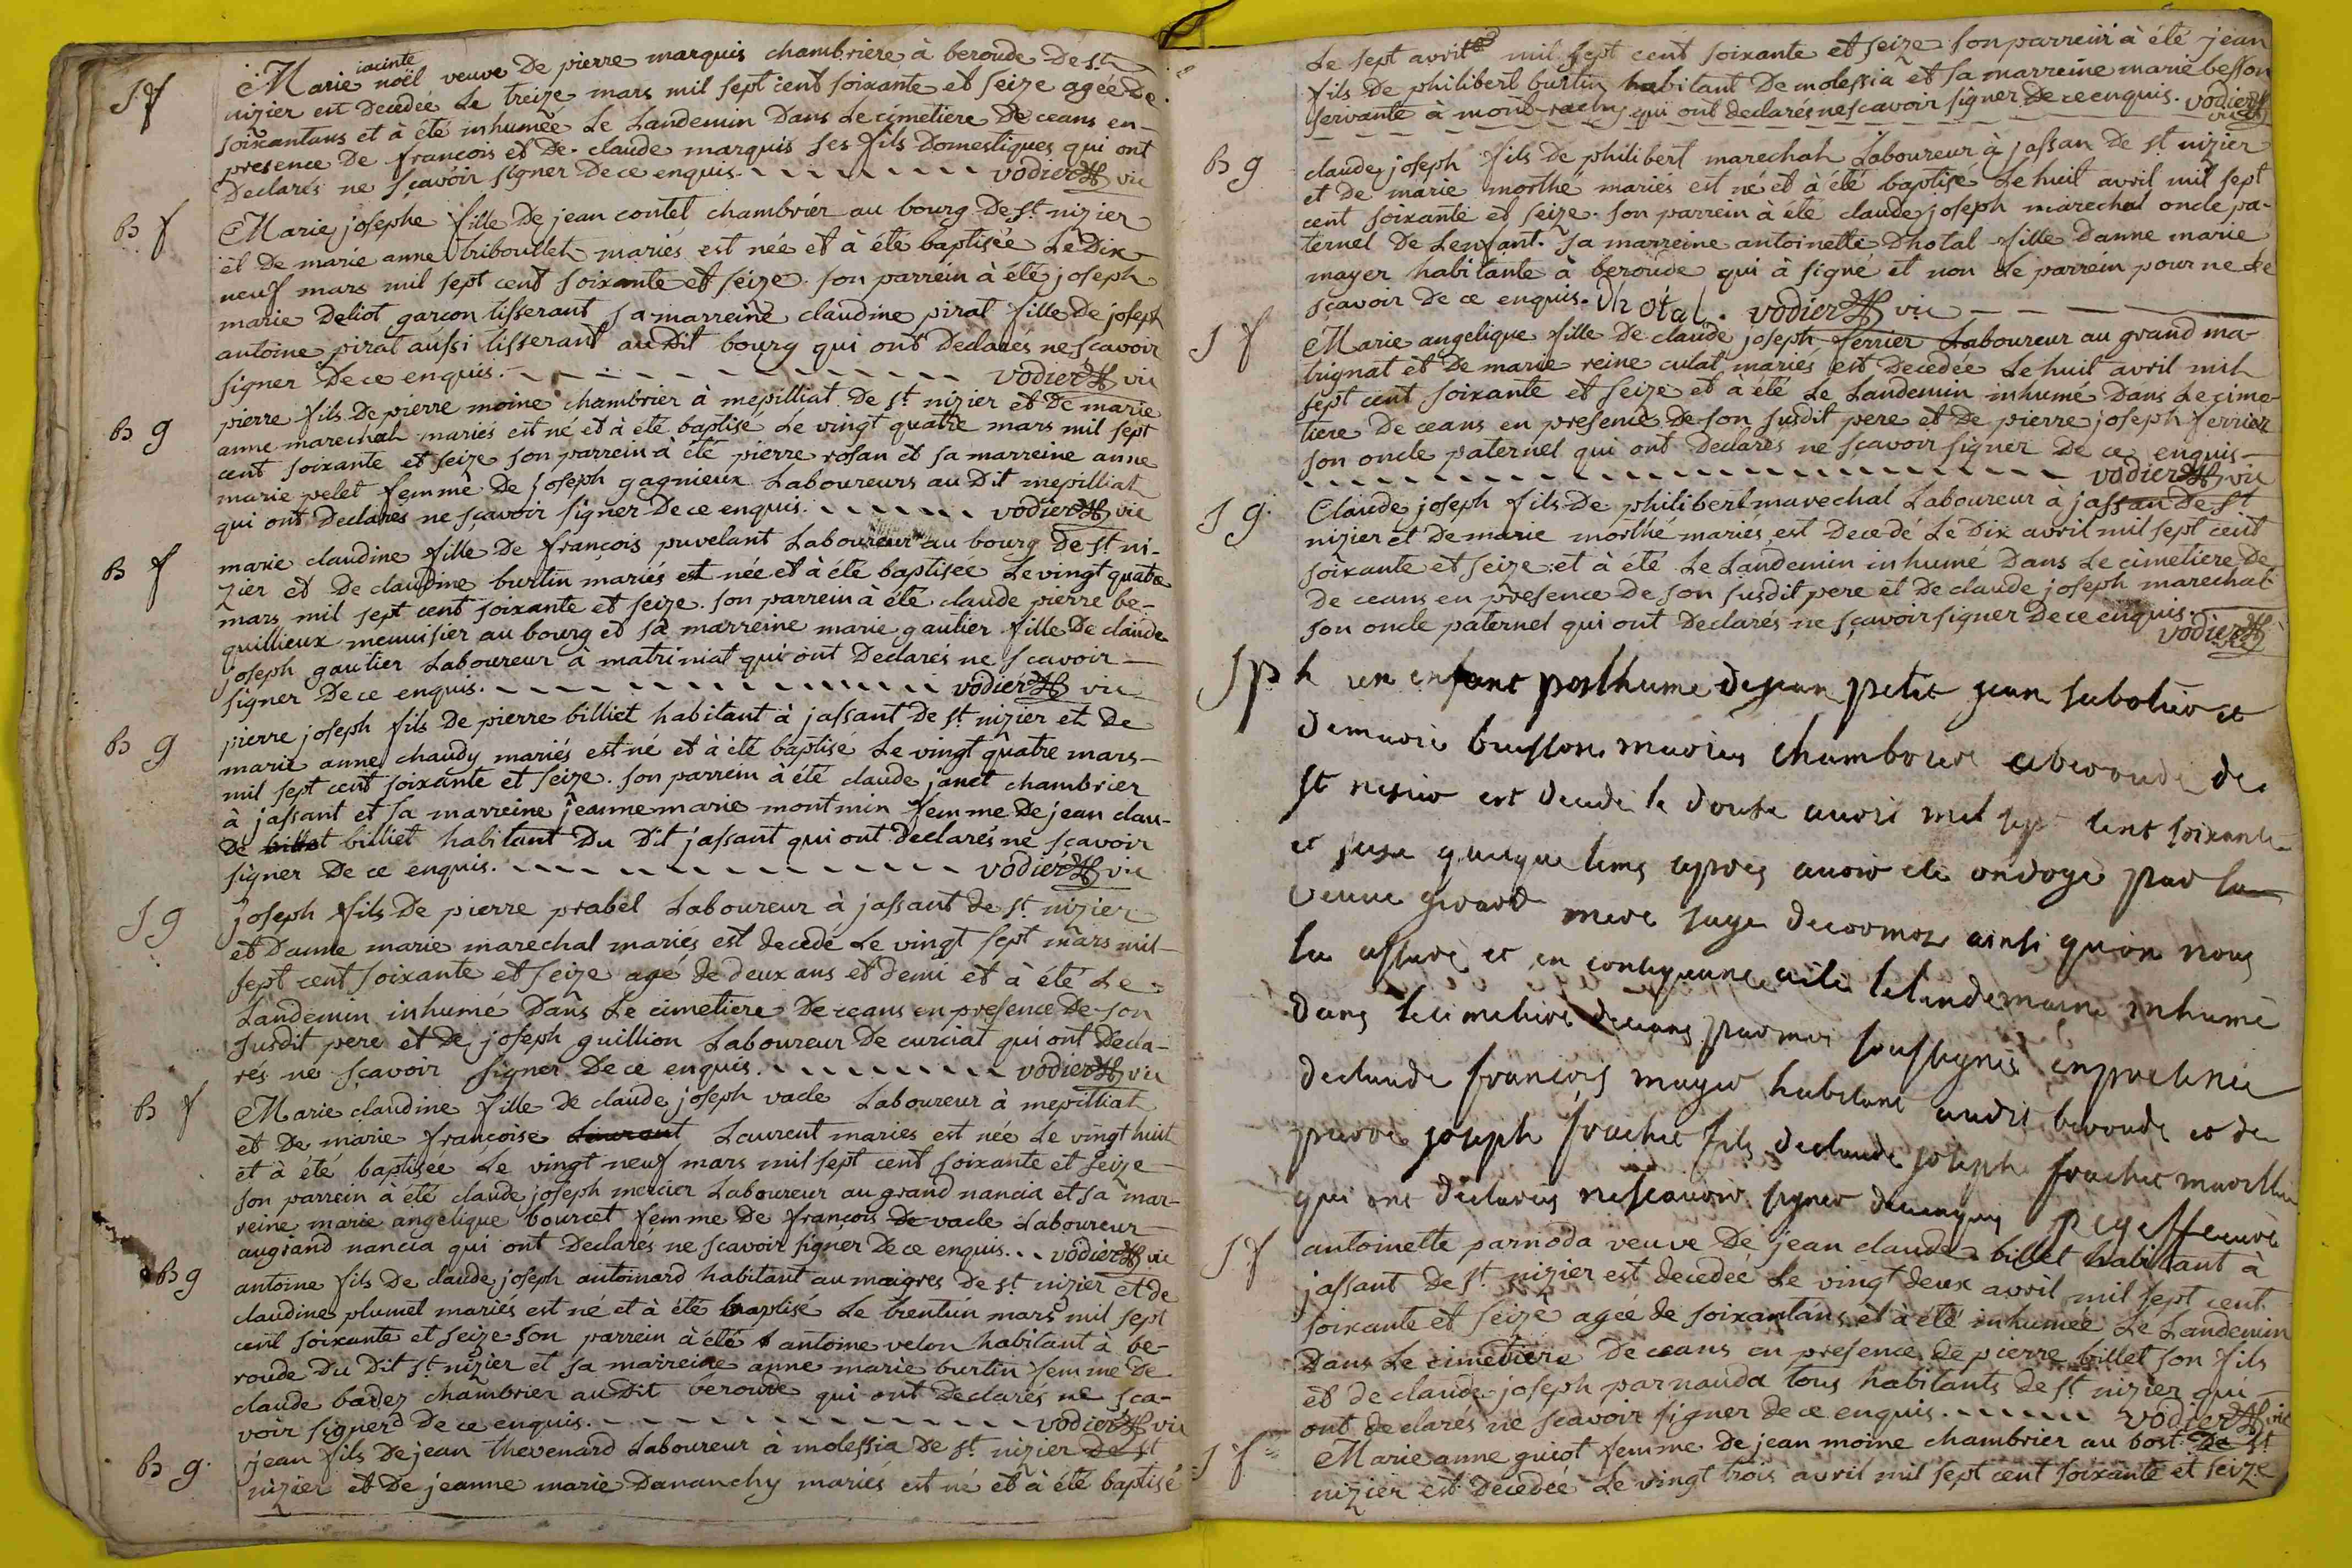 Sf
Marie iacinte noël veuve De pierre marquis chambriere à beroude De st
nizier est Decedeé Le treize mars mil sept cent soixante et seize ageé De
soixantans et à été inhumeé Le Landemin Dans Le cimetiere De ceans en-
presence De francois et De claude marquis ses fils Domestiques qui ont
Declarés ne sçavoir signer De ce enquis. vodier vic
B f
Marie josephe fille De jean contet chambrier au bourg De st nizier
et De marie anne triboullet mariés est née et à été baptisée Le Dix
neuf mars mil sept cent soixante et seize. son parrein à été joseph
marie Deliot garcon tisserant sa marreine claudine pirat fille De joseph
antoine pirat aussi tisserant au Dit bourg qui ont Declarés ne scavoir
signer De ce enquis. vodier vic
B g
pierre fils De pierre moine chambrier à mepilliat De st nizier et De marie
anne marechal mariés est né et à été baptisé Le vingt quatre mars mil sept
cent soixante et seize son parrein à été pierre rosan et sa marreine anne
marie pelet femme De joseph gagnieux Laboureurs au Dit mepilliat
qui ont Declarés ne sçavoir signer De ce enquis. vodier vic
B f
marie claudine fille De françois puvelant Laboureur au bourg De st ni-
zier et De claudine burtin mariés est née et à été baptisée Le vingt quatre
mars mil sept cent soixante et seize. son parrein à été claude pierre be-
quillieux menuisier au bourg et sa marreine marie gautier fille De claude
joseph gautier Laboureur à matriniat qui ont Declarés ne scavoir
signer De ce enquis. vodier vic
B g
pierre joseph fils De pierre billiet habitant à jassant de st nizier et De
marie anne chaudy mariés est né et à été baptisé Le vingt quatre mars
mil sept cent soixante et seize. son parrein à été claude janet chambrier
à jassant et sa marreine jeanne marie montmin femme De jean clau-
De billet billiet habitant Du Dit jassant qui ont Declarés ne scavoir
signer De ce enquis. vodier vic
S g
joseph fils De pierre prabel Laboureur à jassant de st nizier
et Danne marie marechal mariés est decedé Le vingt sept mars mil
sept cent soixante et seize agé de deux ans et demi et à été Le
Landemin inhumé Dans Le cimetiere De ceans en presence De son
susdit pere et De joseph guillion Laboureur De curciat qui ont Decla-
rés ne sçavoir signer De ce enquis. vodier vic
B f
Marie claudine fille De claude joseph vacle Laboureur à mepilliat
et De marie françoise Laurent Laurent mariés est née Le vingt huit
et à été baptisée Le vingt neuf mars mil sept cent soixante et seize
son parrein à été claude joseph mercier Laboureur au grand nancia et sa mar-
reine marie angelique bourcet femme De françois De vacle Laboureur
au grand nancia qui ont Declarés ne scavoir signer De ce enquis. vodier vic
B g
antoine fils De claude joseph antoinard habitant au maigres De st nizier et de
claudine plumet mariés est né et à été baptisé Le trentun mars mil sept
cent soixante et seize son parrein à été antoine velon habitant à be-
roude Du Dit st nizier et sa marreine anne marie burtin femme De
claude badez chambrier au Dit beroude qui ont Declarés ne sca-
voir signer De ce enquis. vodier vic
B g
jean fils De jean thevenard Laboureur à molessia De st nizier De st
nizier et De jeanne marie Dananchy mariés est né et à été baptisé
Le sept avril mil sept cent soixante et seize son parrein à été jean
fils De philibert burtin habitant De molessia et sa marreine marie besson
servante à mont qui ont declarés ne scavoir signer De ce enquis. vodier
vic
B g
claude joseph fils De philibert marechal Laboureur à jassan de st nizier
et De marie morthé mariés est né et à été baptisé Le huit avril mil sept
cent soixante et seize. son parrein à été claude joseph marechal oncle pa-
ternel De Lenfant. sa marreine antoinette Dhotal fille Danne marie
mayer habitante à beroude qui à signé et non Le parrein pour ne Le
scavoir De ce enquis. Dhotal. vodier vic
S f
Marie angelique fille De claude joseph ferrier Laboureur au grand ma-
trignat et De marie reine culat mariés est Decedée Le huit avril mil
sept cent soixante et seize et à été Le Landemin inhumé Dans Le cime-
tiere De ceans en presence De son susdit pere et De pierre joseph ferrier
son oncle paternel qui ont Declarés ne sçavoir signer De ce enquis
vodier vic
S g
Claude joseph fils De philibert marechal Laboureur a jassan De st
nizier et De marie morthé mariés est Decedé Le Dix avril mil sept cent
soixante et seize et à été Le Landemin inhumé Dans Le cimetiere De
De ceans en presence De son susdit pere et De claude joseph marechal
son oncle paternel qui ont Declarés ne sçavoir signer De ce enquis.
vodier vic
un enfant posthume de jean petit jean sabotier et
de marie buisson mariés chambriere a beroude de
st nisier est decedé le douse avril mil sept cent soixante
et sese quelque tems apres avoir ete ondoye par la
veuve girard mere sage de cormoz ainsi quon nous
la assuré et en consequence a ete le landemain inhumé
dans le cimetiere de ceans par moi soussigné en presence
de claude françois mayer habitant audit beroude et de
pierre joseph frachet fils de claude joseph frachet
qui ont declarés ne scavoir signer de ce enquis
S f
antoinette parnoda veuve De jean claude billet habitant à
jassant De st nizier est decedeé Le vingt deux avril mil sept cent
soixante et seize ageé de soixantans et à été inhumeé Le Landemin
Dans Le cimetiere De ceans en presence De pierre billet son fils
et de claude joseph parnauda tous habitants de st nizier qui
ont declarés ne scavoir signer de ce enquis. vodier vic
S f
Marie anne guiot femme De jean moine chambrier au bost De st
nizier est Decedeé Le vingt trois avril mil sept cent soixante et seize